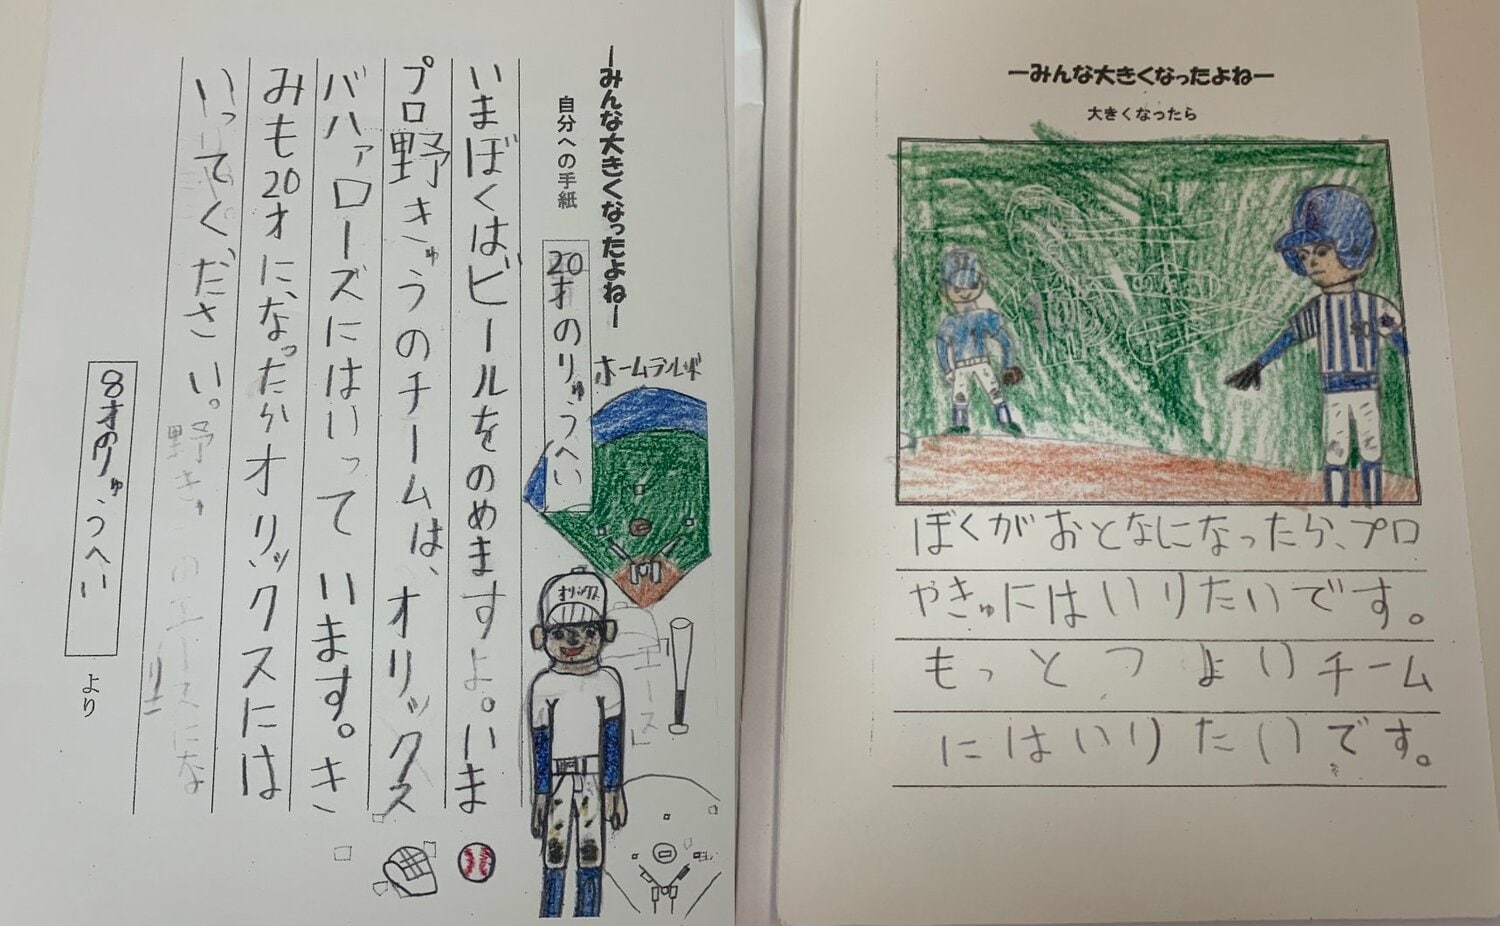 ーみんな大きくなったよねー
自分への手紙
20才のりゅうへい
ホームランルド
いまぼくはビールをのめますよ。いま
プロ野きゅうのチームは、オリックス
バハァローズにはいって います。き
みも20才に、なったかオリックスには
いってください。
8才のりゅうへい
より
オリックス
「エース」
ーみんな大きくなったよねー
大きくなったら
ぼくがおとなになったら、プロ
やきゅにはいりたいです。
もっとつよいチーム
にはいりたいです。